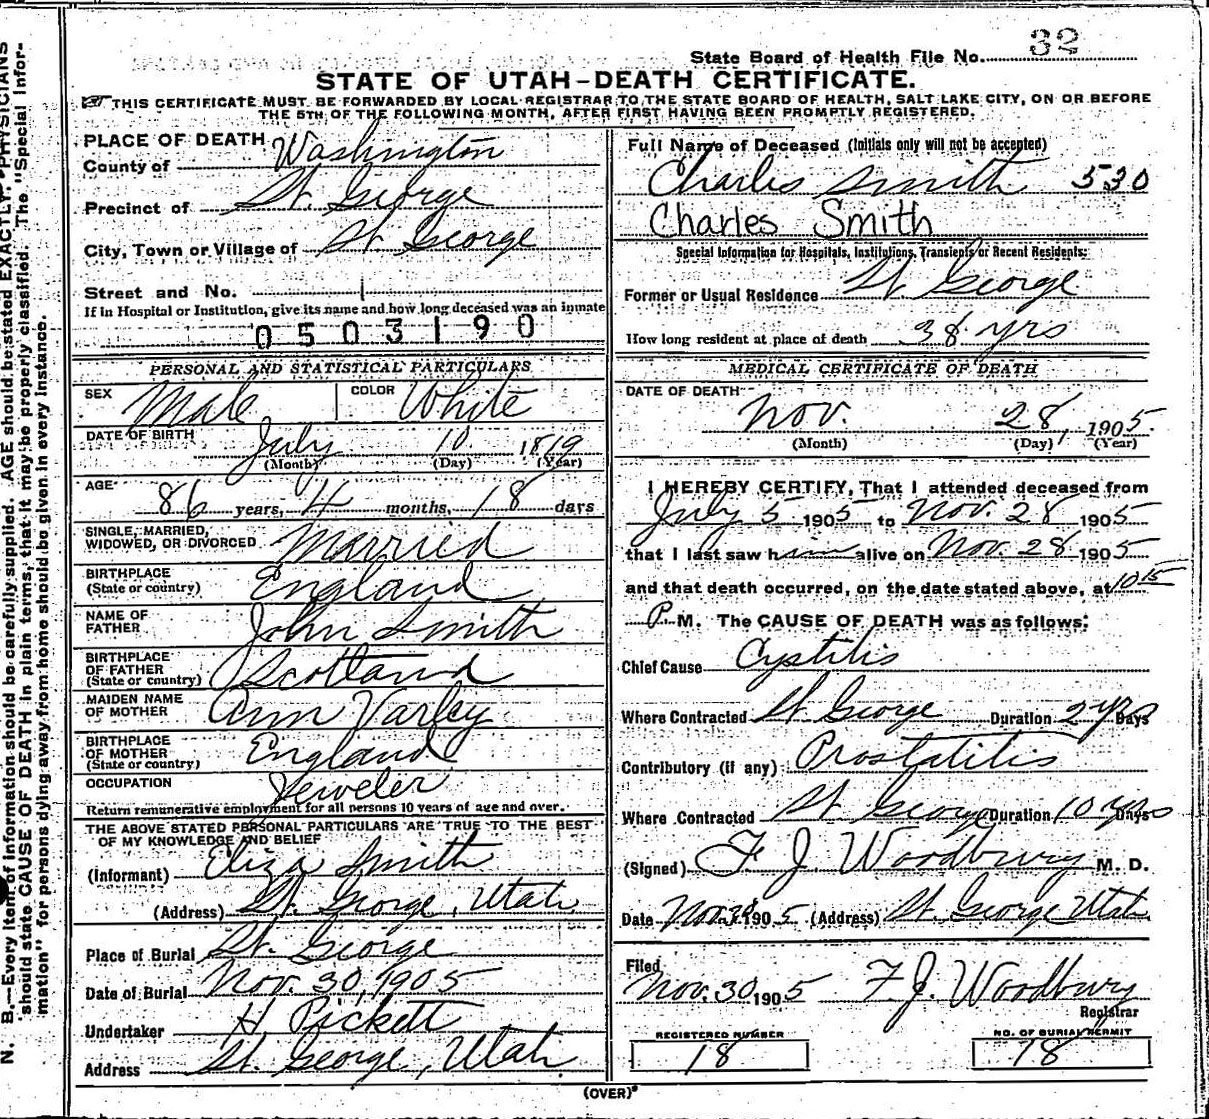 State Board of Health File No. 32
STATE OF UTAH-DEATH CERTIFICATE.
THIS CERTIFICATE MUST BE FORWARDED BY LOCAL REGISTRAR TO THE STATE BOARD OF HEALTH, SALT LAKE CITY, ON OR BEFORE
THE 5TH OF THE FOLLOWING MONTH, AFTER FIRST HAVING BEEN PROMPTLY REGISTERED.
PLACE OF DEATH
County of Washington
Precinct of St. George
City, Town or Village of St George
Street and No.
If in Hospital or Institution, give its name and how long deceased was an inmate
0503190
PERSONAL AND STATISTICAL PARTICULARS
SEX Male COLOR White
DATE OF BIRTH July 10 1819
(Month) (Day) (Year)
AGE 86 years, 4 months, 18 days
SINGLE, MARRIED,
WIDOWED, OR DIVORCED Married
BIRTHPLACE
(State or country) England
NAME OF
FATHER John Smith
BIRTHPLACE
OF FATHER
(State or country) Scotland
MAIDEN NAME
OF MOTHER Ann Varley
BIRTHPLACE
OF MOTHER
(State or country) England
OCCUPATION Jeweler
Return remunerative employment for all persons 10 years of age and over.
THE ABOVE STATED PERSONAL PARTICULARS ARE TRUE TO THE BEST
OF MY KNOWLEDGE AND BELIEF
(Informant) Eliza Smith
(Address) St. George, Utah.
Place of Burial St. George
Date of Burial Nov. 30, 1905
Undertaker H. Pickett
Address St. George, Utah.
Full Name of Deceased (Initials only will not be accepted)
Charles Smith 530
Charles Smith
Special Information for Hospitals, Institutions, Transients or Recent Residents:
Former or Usual Residence St. George
How long resident at place of death 38 yrs
MEDICAL CERTIFICATE OF DEATH
DATE OF DEATH
Nov. 28, 1905.
(Month) (Day) (Year)
I HEREBY CERTIFY, That I attended deceased from
July 5 1905 to Nov. 28 1905
that I last saw him alive on Nov. 28 1905
and that death occurred, on the date stated above, at 10 15
P. M. The CAUSE OF DEATH was as follows:
Chief Cause Cystitis
Where Contracted St George Duration 2 yrs Days
Contributory (if any) Prostatitis
Where Contracted St George Duration 10 yrs Days
(Signed) F. J. Woodbury M. D.
Date Nov. 1905 (Address) St. George Utah.
Filed
Nov. 30 1905 F. J. Woodbury
Registrar
REGISTERED NUMBER
18
NO. OF BURIAL PERMIT
18
(OVER)
N. B.—Every item of information should be carefully supplied. AGE should be stated EXACTLY. PHYSICIANS
should state CAUSE OF DEATH in plain terms, that it may be properly classified. The "Special Infor-
mation" for persons dying away from home should be given in every instance.